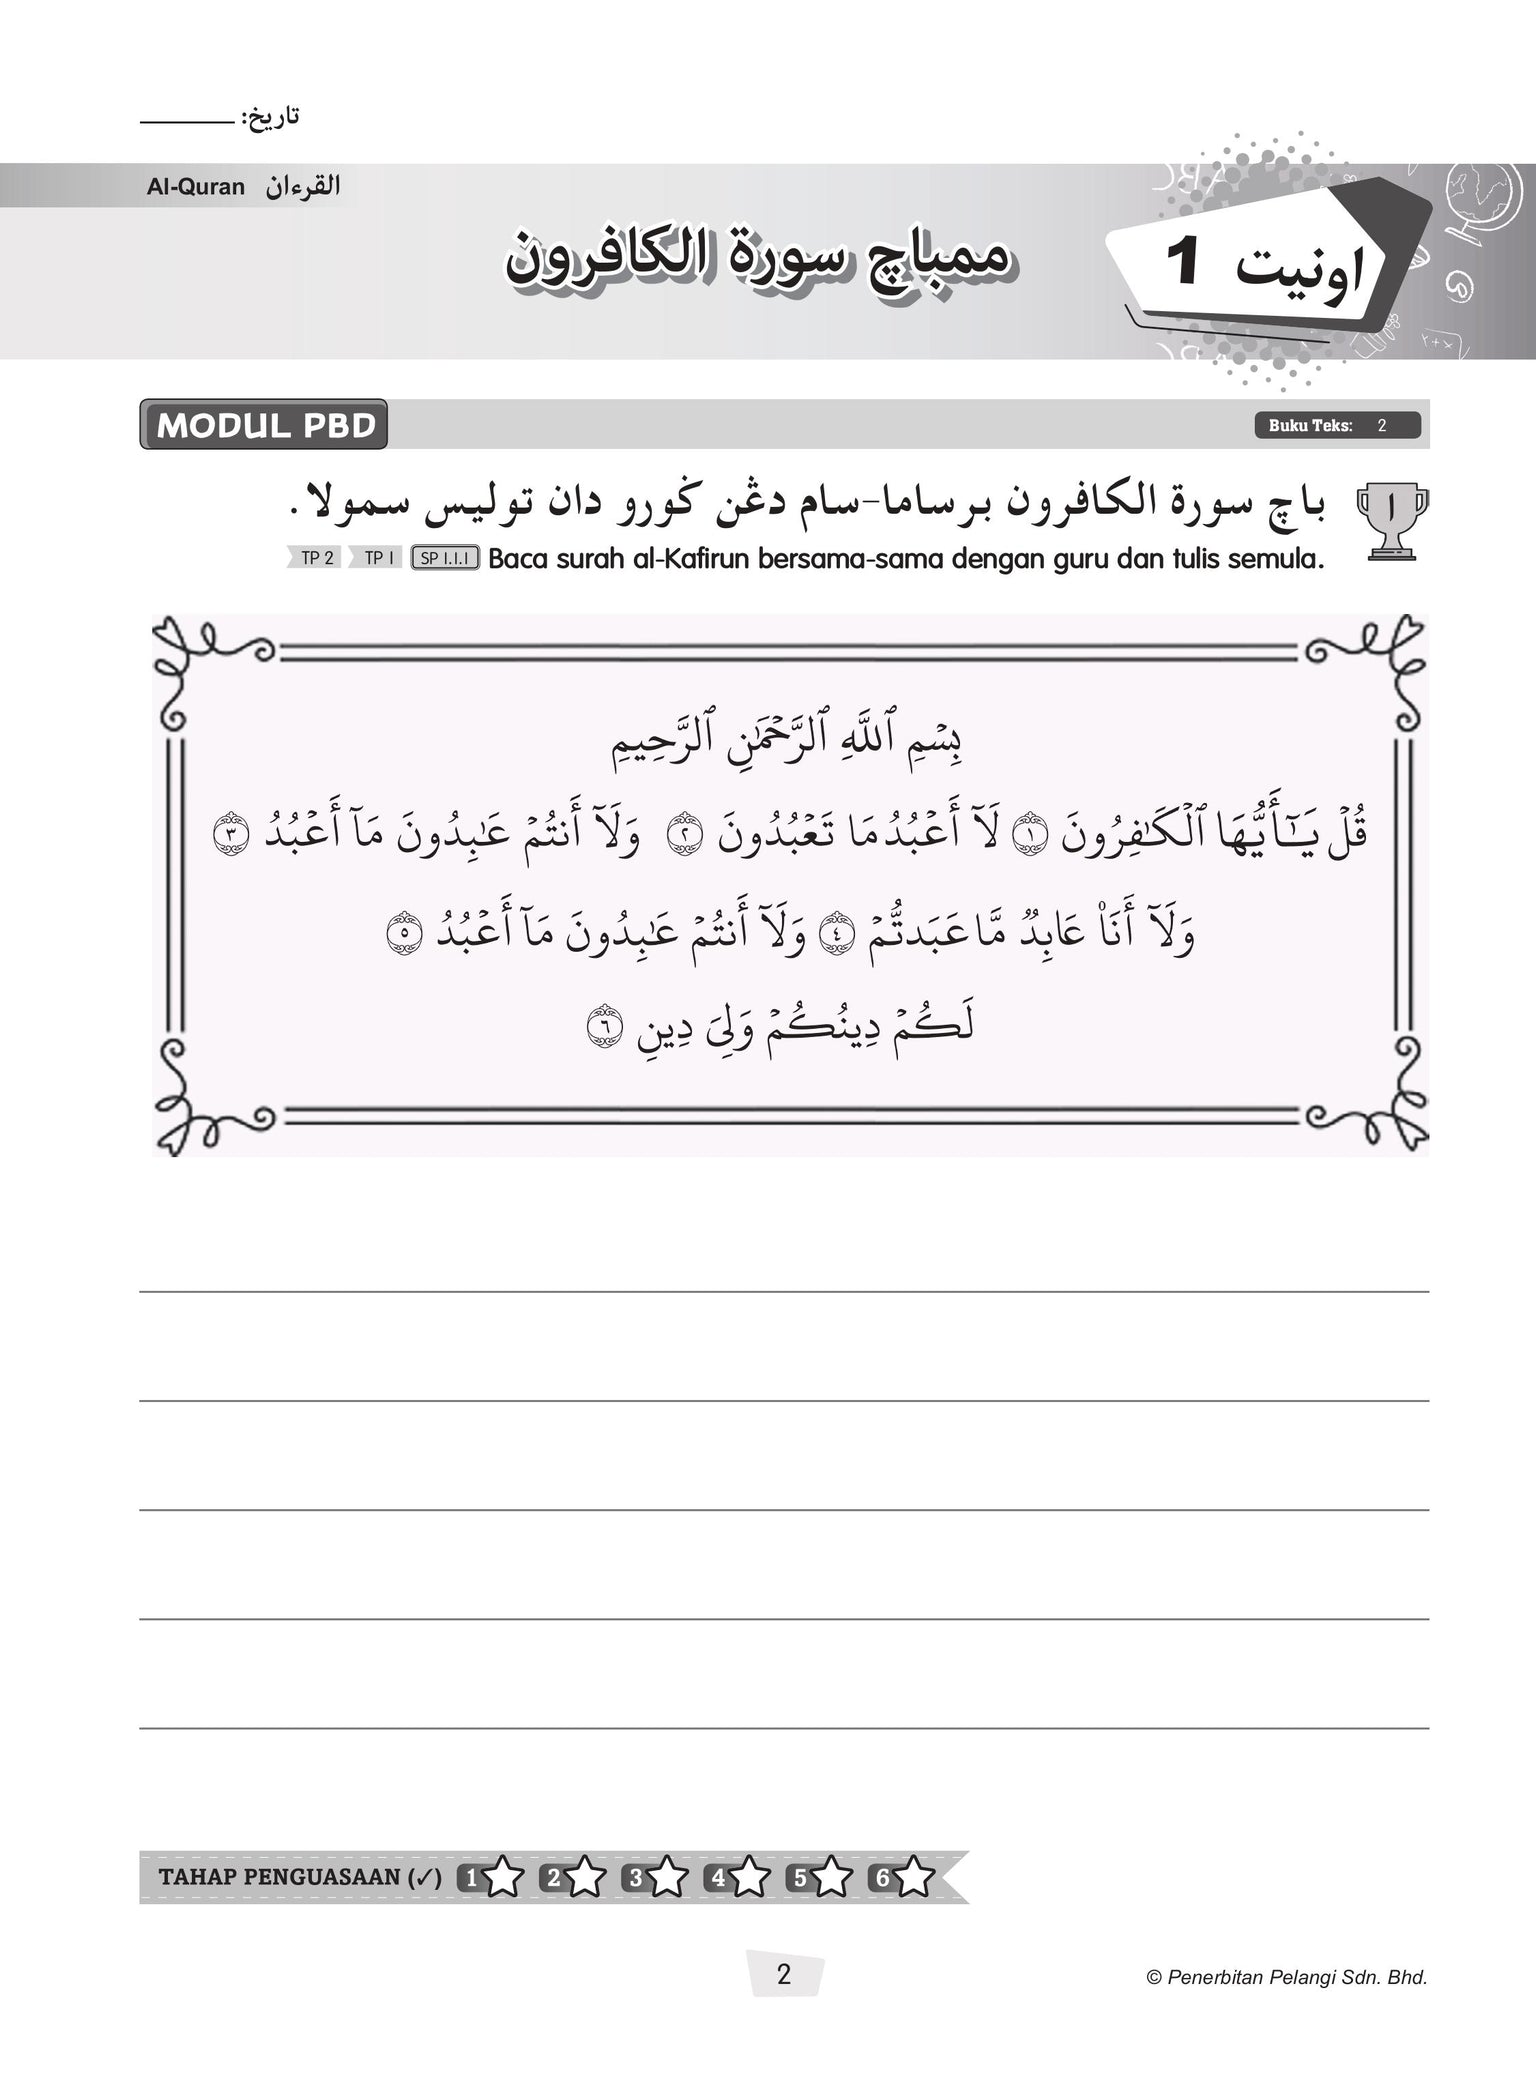 تاريخ: ________
Al-Quran القرءان
اونيت 1
ممباچ سورة الكافرون
MODUL PBD
Buku Teks: 2
١
باچ سورة الكافرون برساما-سام دڠن ݢورو دان توليس سمولا.
Baca surah al-Kafirun bersama-sama dengan guru dan tulis semula. SP 1.1.1 TP 1 TP 2
بِسْمِ ٱللَّهِ ٱلرَّحْمَٰنِ ٱلرَّحِيمِ
قُلْ يَٰٓأَيُّهَا ٱلْكَٰفِرُونَ ١ لَآ أَعْبُدُ مَا تَعْبُدُونَ ٢ وَلَآ أَنتُمْ عَٰبِدُونَ مَآ أَعْبُدُ ٣
وَلَآ أَنَا۠ عَابِدٌ مَّا عَبَدتُّمْ ٤ وَلَآ أَنتُمْ عَٰبِدُونَ مَآ أَعْبُدُ ٥
لَكُمْ دِينُكُمْ وَلِىَ دِينِ ٦
TAHAP PENGUASAAN (✓) 1 2 3 4 5 6
2
© Penerbitan Pelangi Sdn. Bhd.